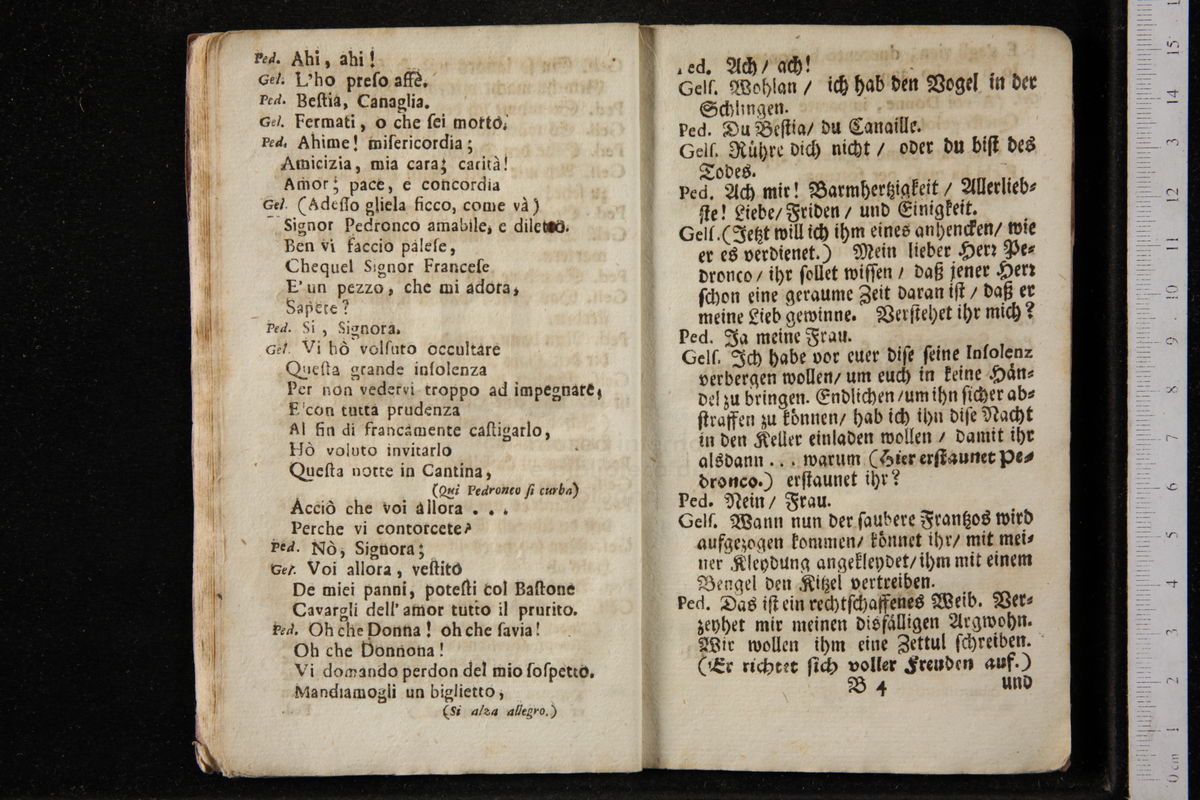 Ped. Ahi, ahi!
Gel. L'ho preſo affè.
Ped. Beſtia, Canaglia.
Gel. Fermati, o che ſei morto.
Ped. Ahime! miſericordia;
Amicizia, mia cara; carità!
Amor; pace, e concordia
Gel. (Adeſſo gliela ficco, come và)
Signor Pedronco amabile, e diletto.
Ben vi faccio paleſe,
Chequel Signor Franceſe
E' un pezzo, che mi adora,
Sapete?
Ped. Si, Signora.
Gel. Vi hò volſuto occultare
Queſta grande inſolenza
Per non vedervi troppo ad impegnare,
E con tutta prudenza
Al fin di francamente caſtigarlo,
Hò voluto invitarlo
Queſta notte in Cantina,
(Qui Pedronco ſi curba)
Acciò che voi allora . . .
Perche vi contorcete?
Ped. Nò, Signora;
Gel. Voi allora, veſtito
De miei panni, poteſti col Baſtone
Cavargli dell' amor tutto il prurito.
Ped. Oh che Donna! oh che ſavia!
Oh che Donnona!
Vi domando perdon del mio ſoſpetto.
Mandiamogli un biglietto,
(Si alza allegro.)
Ped. Ach / ach!
Gelſ. Wohlan / ich hab den Vogel in der
Schlingen.
Ped. Du Beſtia / du Canaille.
Gelſ. Rühre dich nicht / oder du biſt des
Todes.
Ped. Ach mir! Barmhertzigkeit / Allerlieb⸗
ſte! Liebe / Friden / und Einigkeit.
Gelſ. (Jetzt will ich ihm eines anhencken / wie
er es verdienet.) Mein lieber Herr Pe⸗
dronco / ihr ſollet wiſſen / daß jener Herr
ſchon eine geraume Zeit daran iſt / daß er
meine Lieb gewinne. Verſtehet ihr mich?
Ped. Ja meine Frau.
Gelſ. Ich habe vor euer diſe ſeine Inſolenz
verbergen wollen / um euch in keine Hän⸗
del zu bringen. Endlichen / um ihn ſicher ab⸗
ſtraffen zu können / hab ich ihn diſe Nacht
in den Keller einladen wollen / damit ihr
alsdann . . . warum (Hier erſtaunet Pe⸗
dronco.) erſtaunet ihr?
Ped. Nein / Frau.
Gelſ. Wann nun der ſaubere Frantzos wird
aufgezogen kommen / könnet ihr / mit mei⸗
ner Kleydung angekleydet / ihm mit einem
Bengel den Kitzel vertreiben.
Ped. Das iſt ein rechtſchaffenes Weib. Ver⸗
zeyhet mir meinen disfälligen Argwohn.
Wir wollen ihm eine Zettul ſchreiben.
(Er richtet ſich voller Freuden auf.)
B 4 und
0 cm 1 2 3 4 5 6 7 8 9 10 11 12 13 14 15